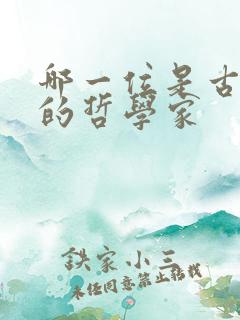 哪一位是古
的哲學家
鉄家小三
未经同意禁止转载